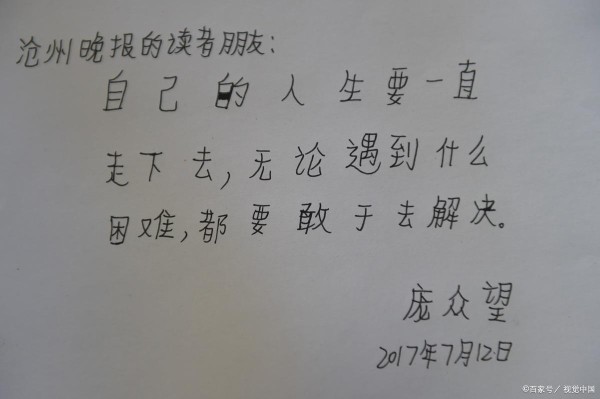 沧州晚报的读者朋友：
自己的人生要一直
走下去，无论遇到什么
困难，都要敢于去解决。
庞众望
2017年7月12日
©百家号／视觉中国